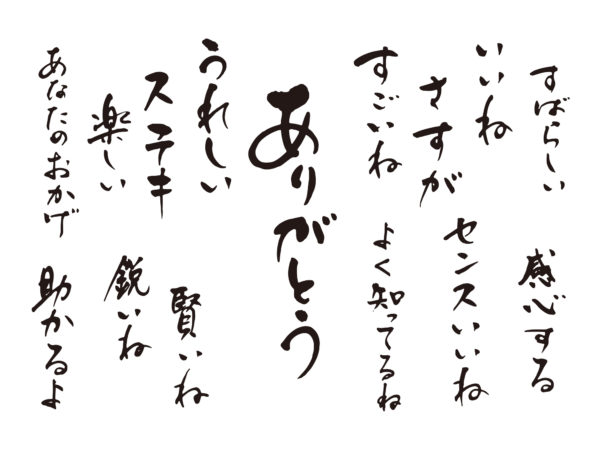 すばらしい
いいね
さすが
すごいね
感心する
センスいいね
よく知ってるね
ありがとう
うれしい
ステキ
楽しい
あなたのおかげ
賢いね
鋭いね
助かるよ